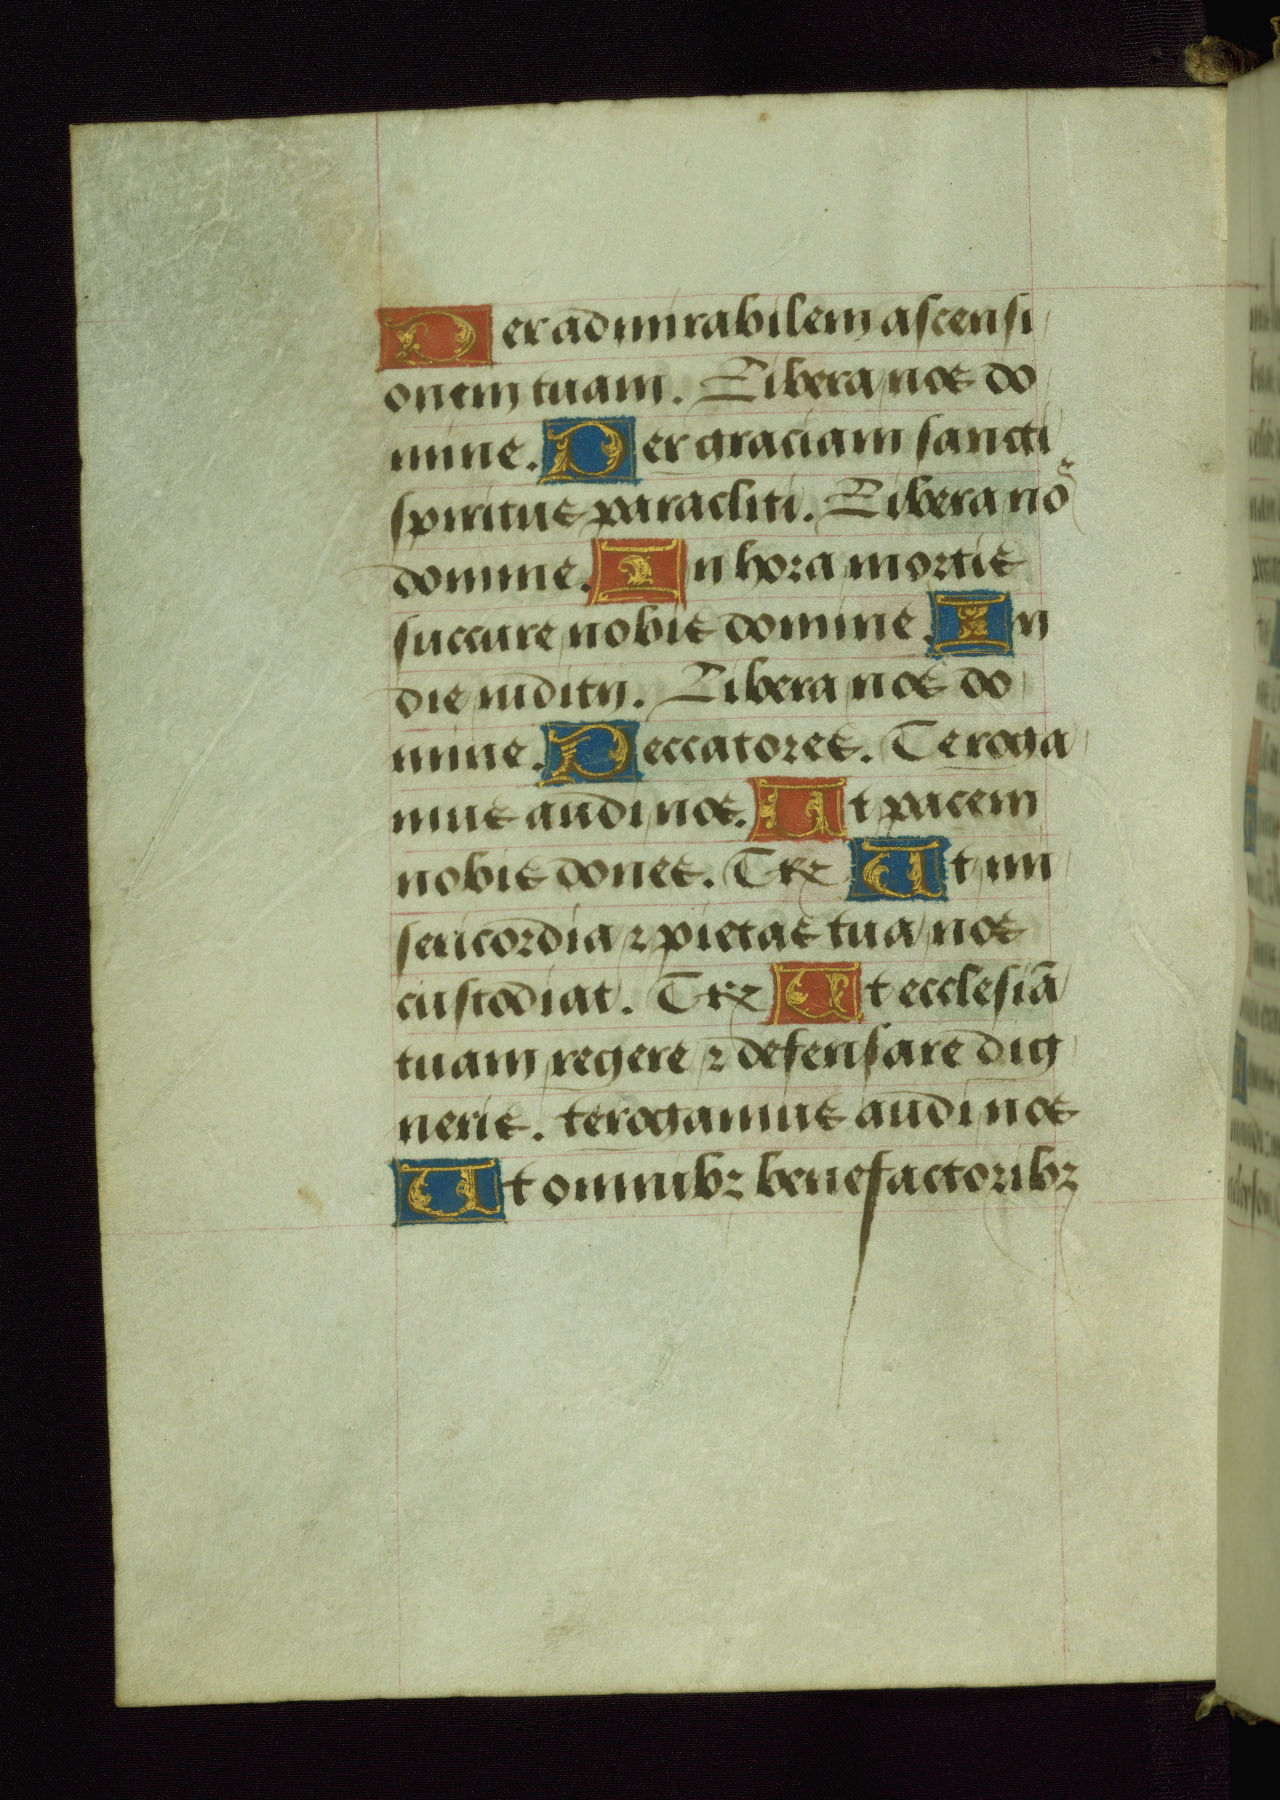 Per admirabilem ascensi
onem tuam. Libera nos do
mine. Per graciam sancti
spiritus paracliti. Libera nõ
domine. In hora mortis
succure nobis domine. In
die iudicij. Libera nos do
mine. Peccatores. Te roga
mus audi nos. Ut pacem
nobis dones. Te r Ut mi
sericordia ⁊ pietas tua nos
custodiat. Te r Ut ecclesiã
tuam regere ⁊ defensare dig
neris. te rogamus audi nos
Ut omnibꝫ benefactoribꝫ